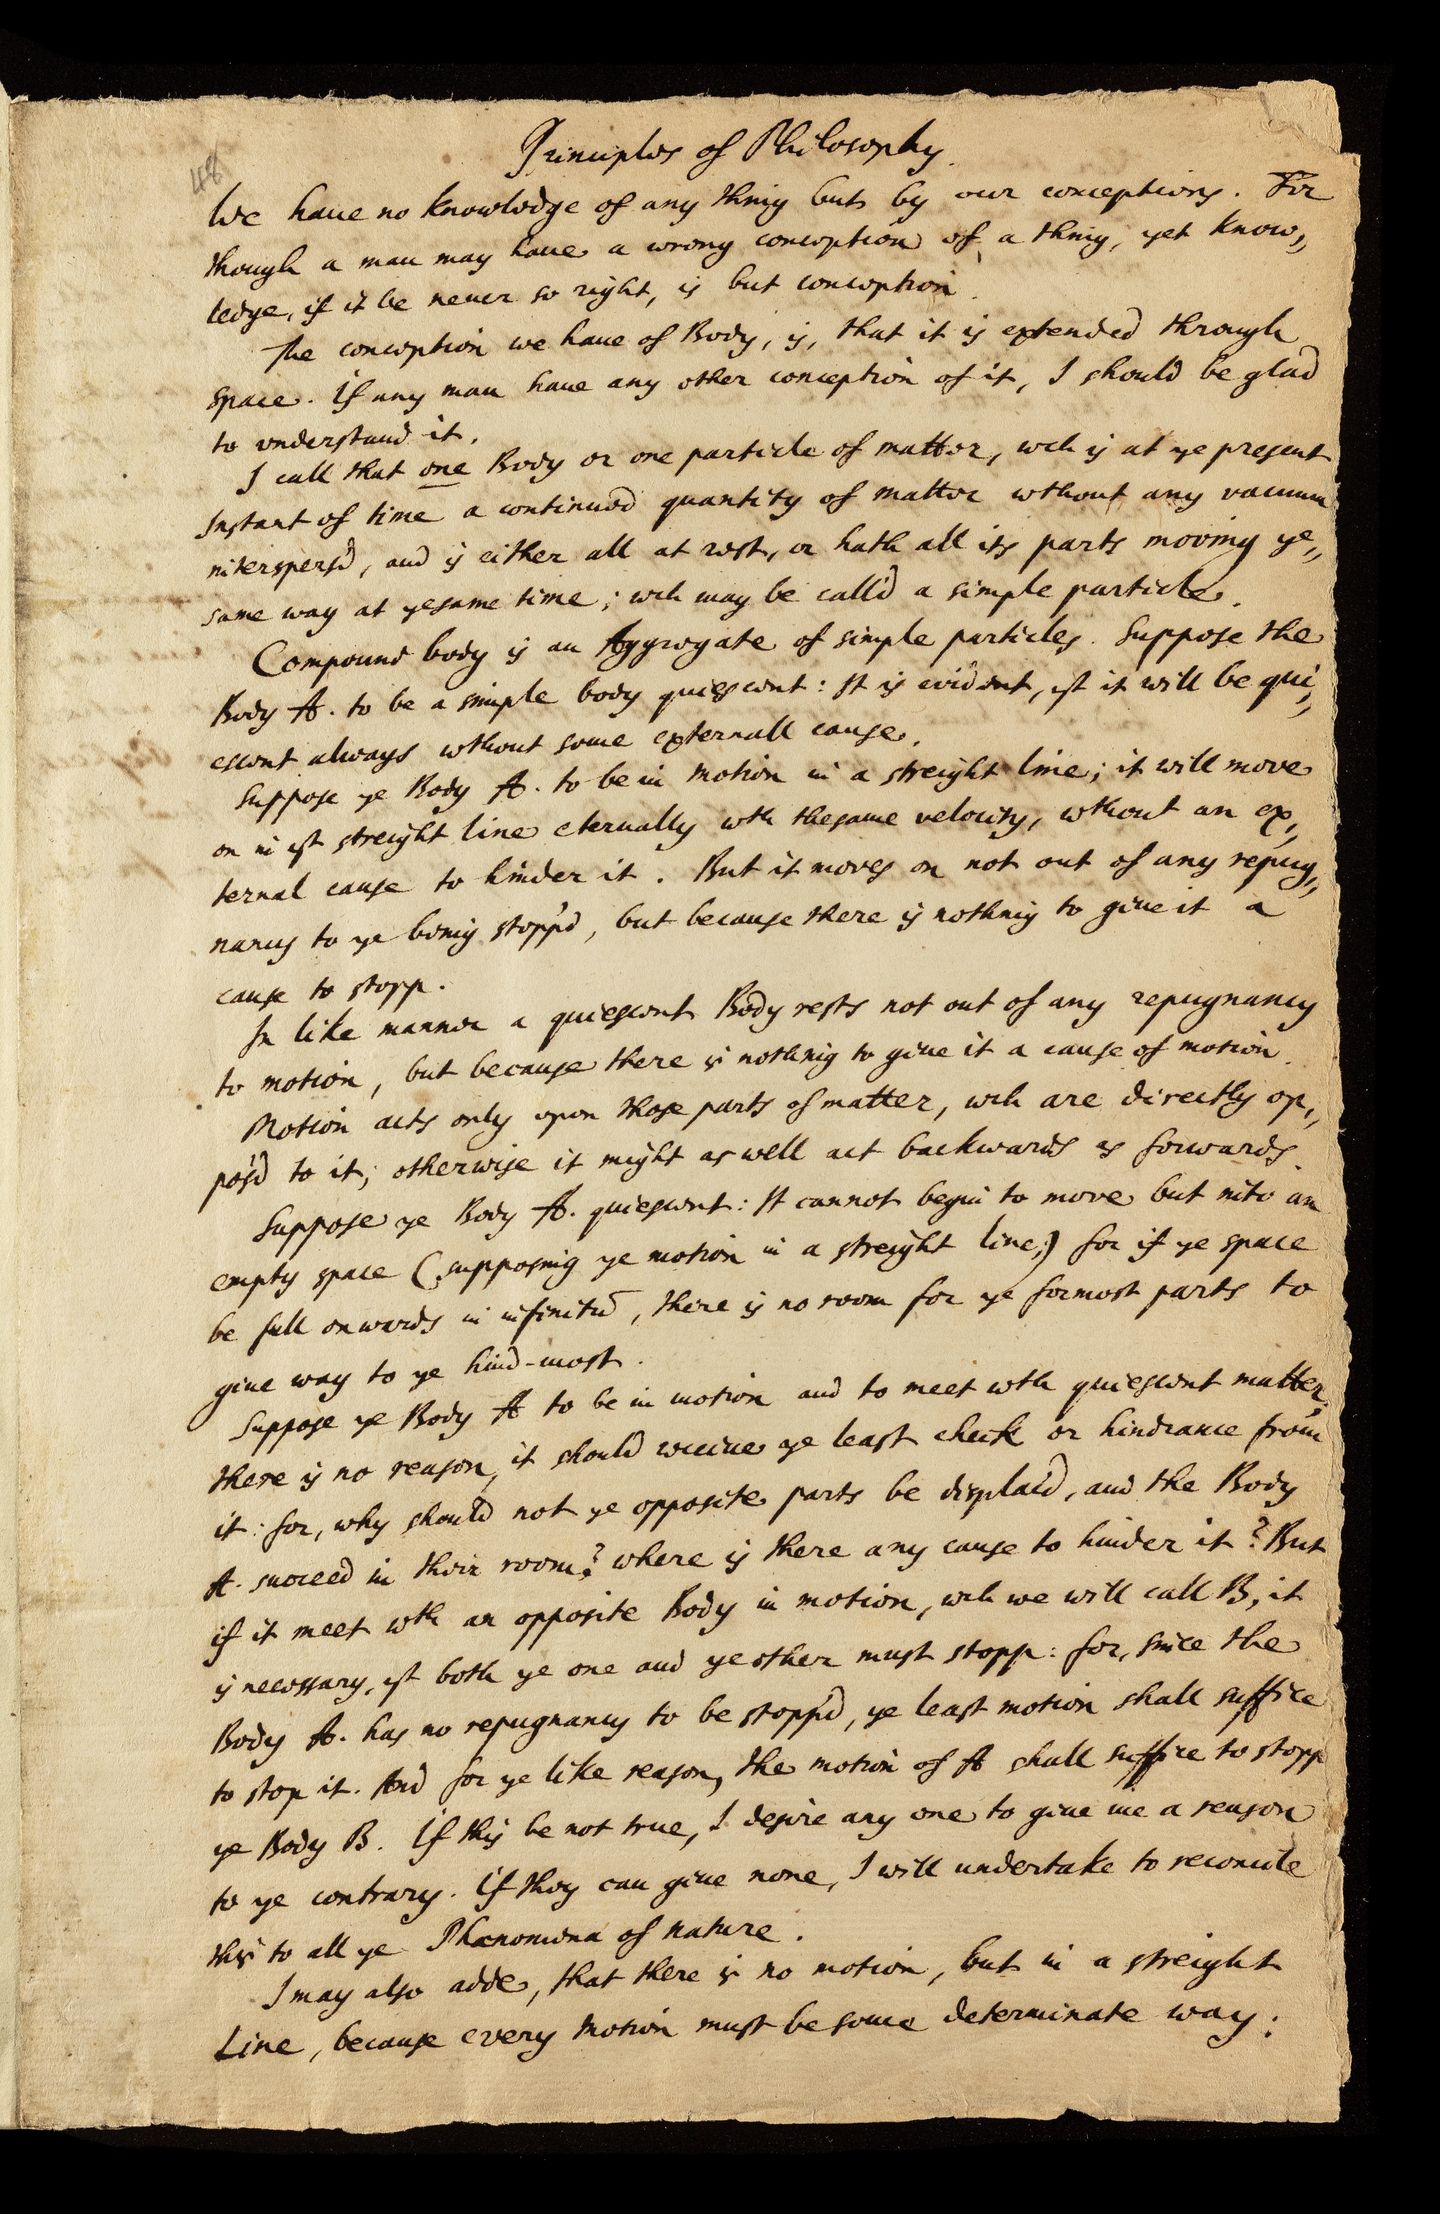 48
Principles of Philosophy.
We have no knowledge of any thing but by our conceptions. For
though a man may have a wrong conception of a thing, yet know„
ledge, if it be never so right, is but conception.
The conception we have of Body, is, that it is extended through
space. If any man have any other conception of it, I should be glad
to understand it.
I call that one Body or one particle of matter, wch is at ye present
Instant of time a continued quantity of matter wthout any vacuum
interspers'd, and is either all at rest, or hath all its parts moving ye„
same way at ye same time; wch may be call'd a simple particle.
Compound body is an Aggregate of simple particles. Suppose the
Body A. to be a simple body quiescent: It is evident, yt it will be qui„
escent always wthout some externall cause.
Suppose ye Body A. to be in Motion in a streight line; it will move
on in yt streight line eternally wth the same velocity, wthout an ex„
ternal cause to hinder it. But it moves on not out of any repug„
nancy to ye being stopp'd, but because there is nothing to give it a
cause to stopp.
In like manner a quiescent Body rests not out of any repugnancy
to motion, but because there is nothing to give it a cause of motion.
Motion acts only upon those parts of matter, wch are directly op„
pos'd to it; otherwise it might as well act backwards as forwards.
Suppose ye Body A. quiescent: It cannot begin to move but into an
empty space (supposing ye motion in a streight line;) for if ye space
be full onwards in infinitū, there is no room for ye formost parts to
give way to ye hind-most.
Suppose ye Body A to be in motion and to meet wth quiescent matter,
there is no reason, it should receive ye least check or hindrance from
it: for, why should not ye opposite parts be displac'd, and the Body
A. succeed in their room? where is there any cause to hinder it? But
if it meet wth an opposite Body in motion, wch we will call B, it
is necessary, yt both ye one and ye other must stopp: for, since the
Body A. has no repugnancy to be stopp'd, ye least motion shall suffice
to stop it. And for ye like reason, the motion of A shall suffice to stopp
ye Body B. If this be not true, I desire any one to give me a reason
to ye contrary. If they can give none, I will undertake to reconcile
this to all ye Phænomena of nature.
I may also adde, that there is no motion, but in a streight
Line, because every Motion must be some determinate way: